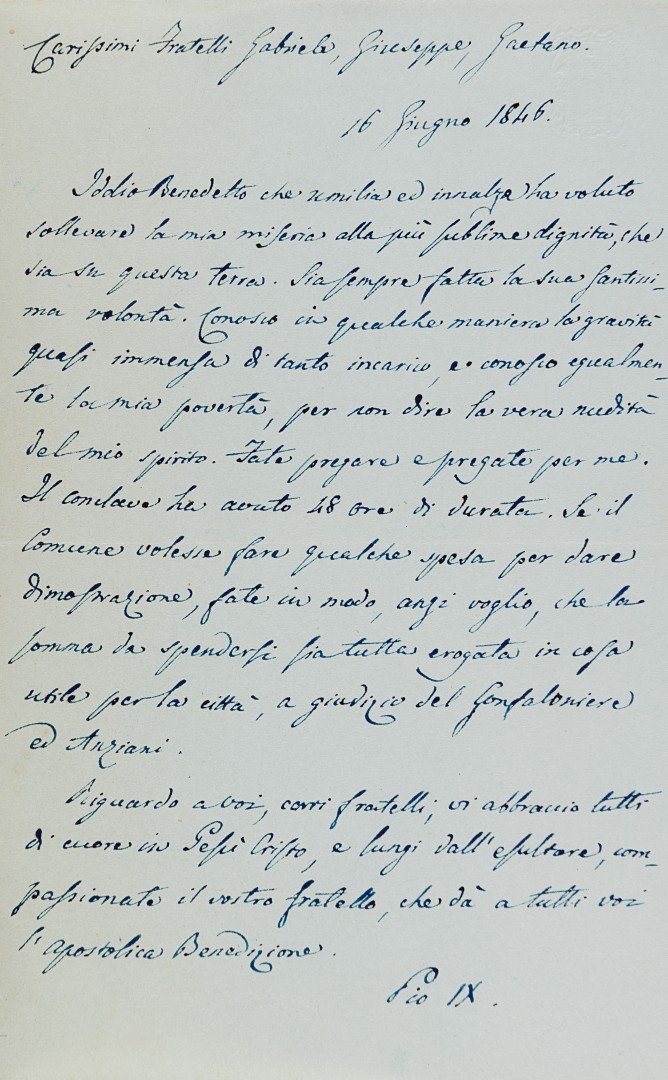 Carissimi Fratelli Gabriele, Giuseppe, Gaetano.
16 Giugno 1846.
Iddio Benedetto che umilia ed innalza ha voluto
sollevare la mia miseria alla più sublime dignità, che
sia su questa terra. Sia sempre fatta la sua santissi-
ma volontà. Conosco in qualche maniera la gravità
quasi immensa di tanto incarico, e conosco egualmen-
te la mia povertà, per non dire la vera nudità
del mio spirito. Fate pregare e pregate per me.
Il conclave ha avuto 48 ore di durata. Se il
Comune volesse fare qualche spesa per dare
dimostrazione, fate in modo, anzi voglio, che la
somma da spendersi sia tutta erogata in cosa
utile per la città, a giudizio del Gonfaloniere
ed Anziani.
Riguardo a voi, carri fratelli, vi abbraccio tutti
di cuore in Gesù Cristo, e lungi dall'esultare, com-
passionate il vostro fratello, che dà a tutti voi
l'apostolica Benedizione.
Pio IX.